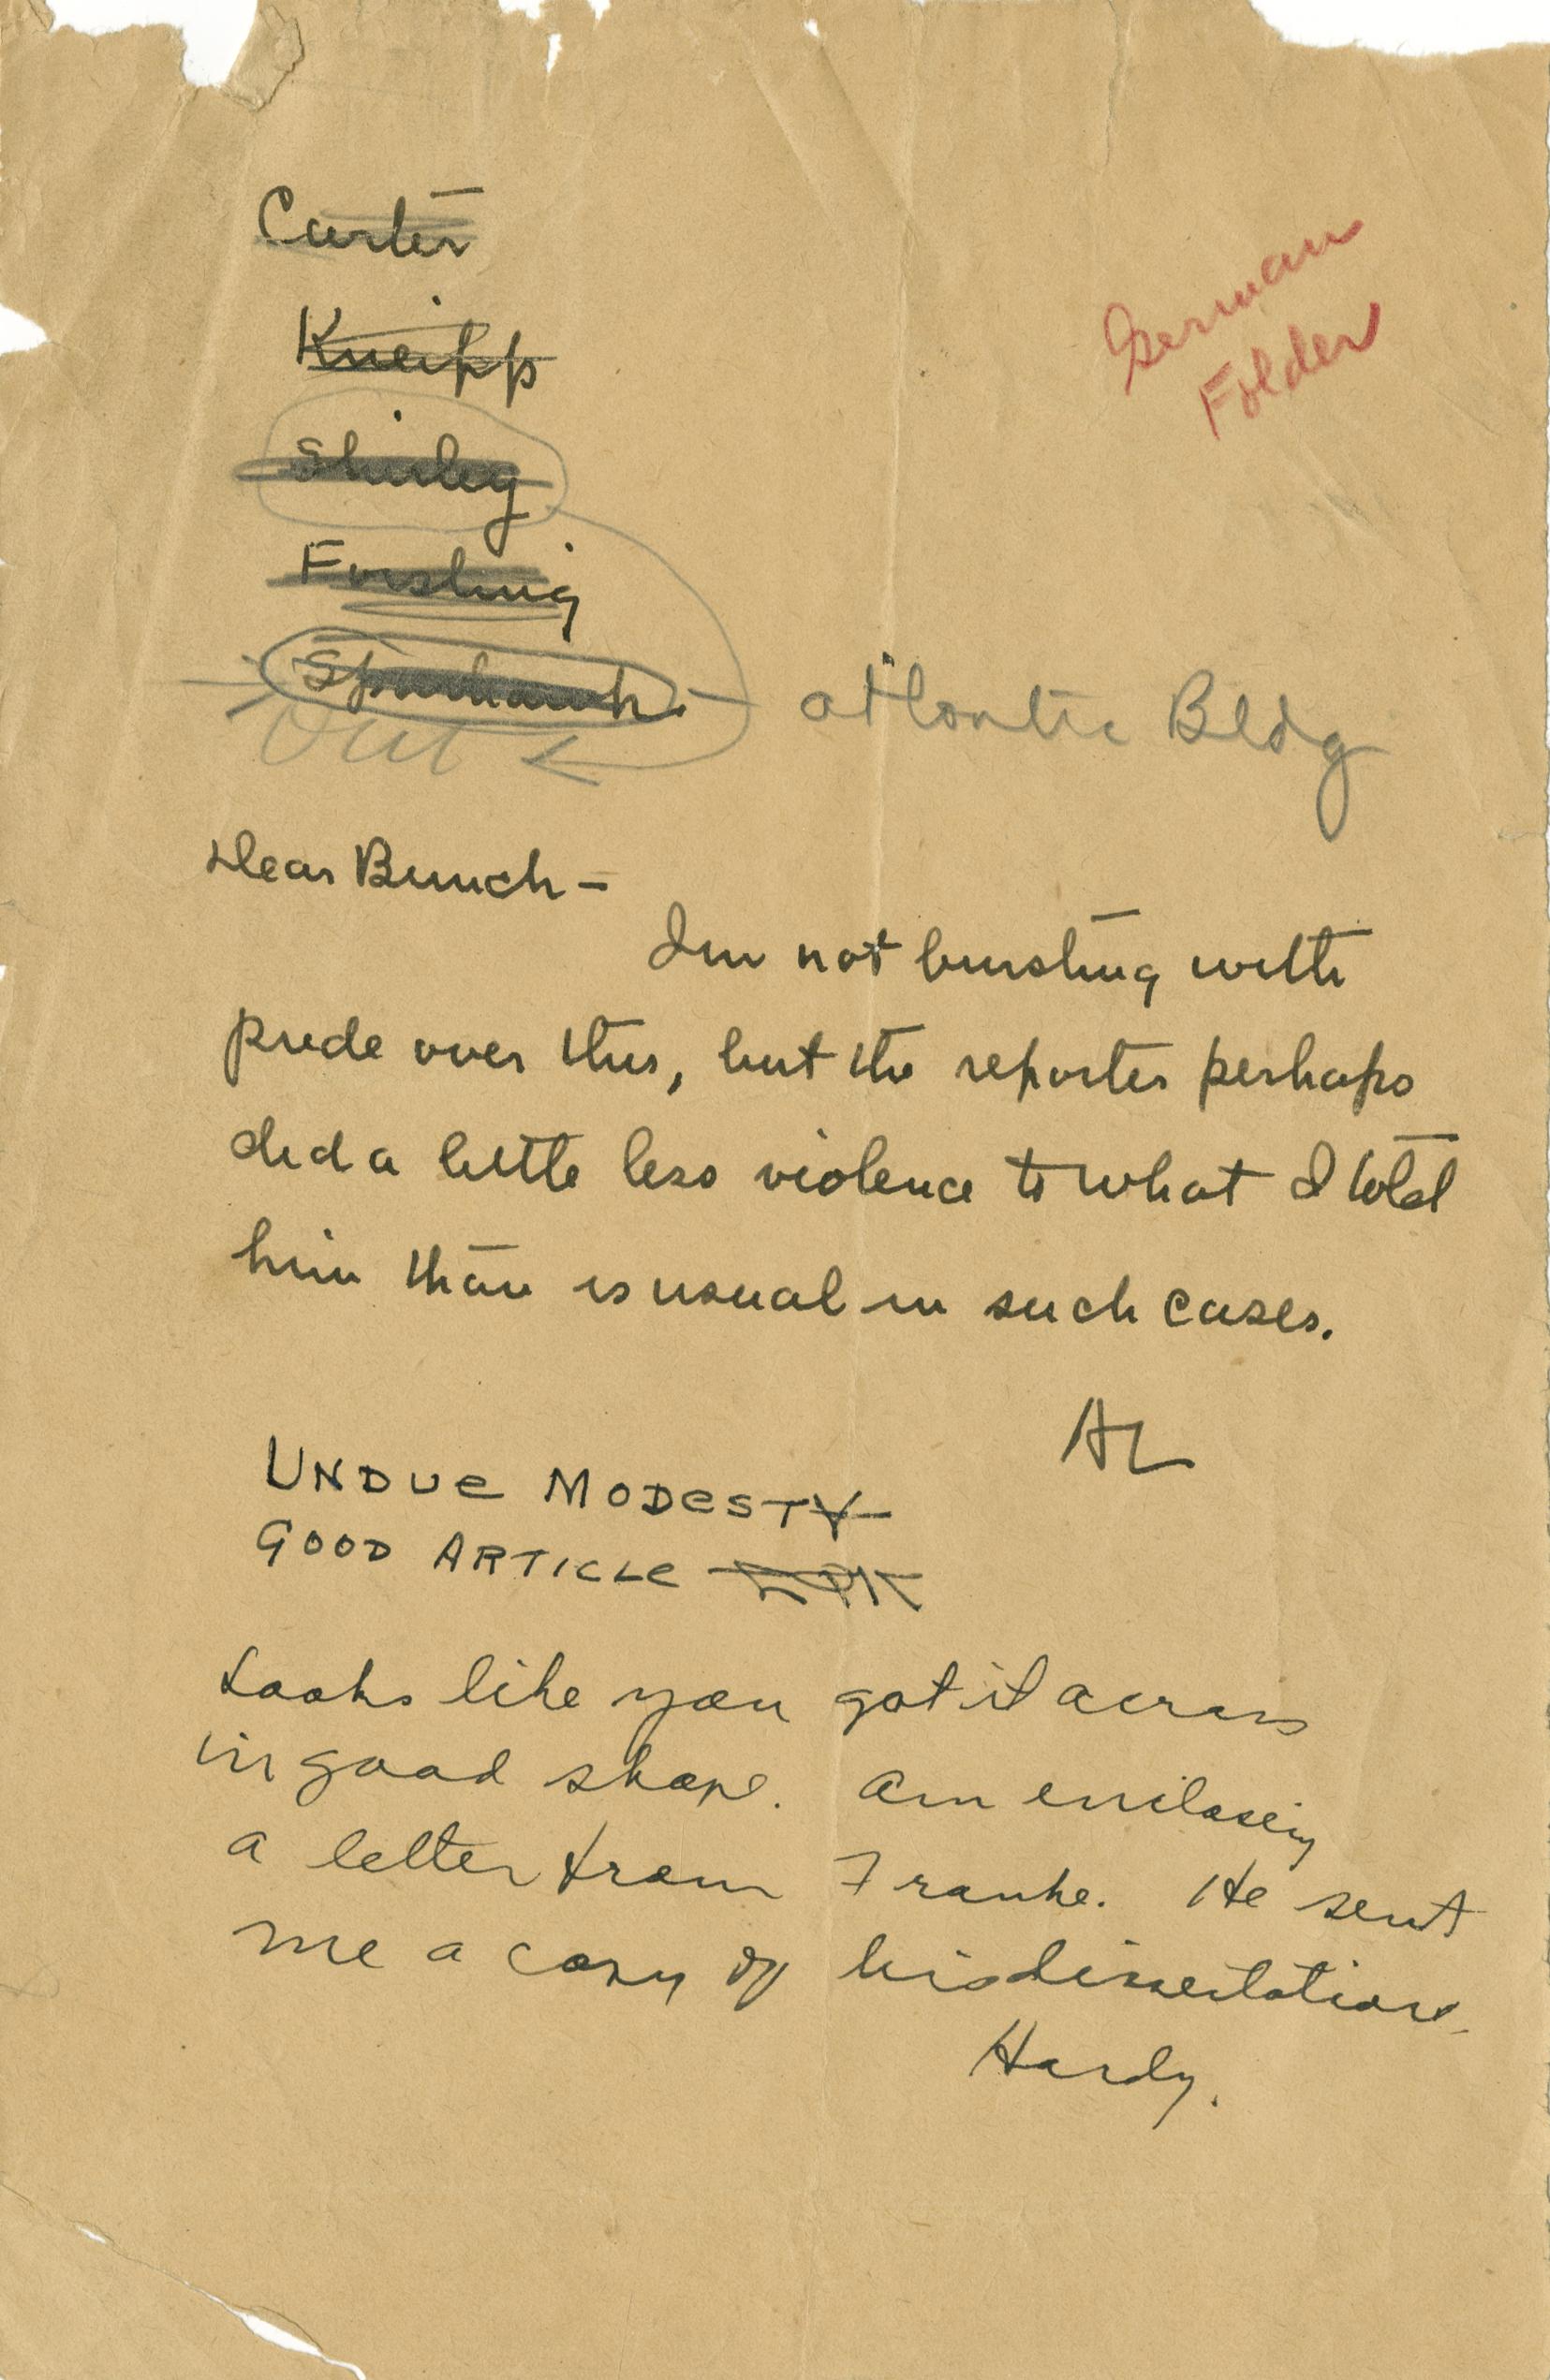 Carter
German
Folder
Kneipp
Shirley
Forsling
Sparhawk
Atlantic Bldg
Out
Dear Bunch -
Im not bursting with
pride over this, but the reporter perhaps
did a little less violence to what I told
him than is usual in such cases.
AL
UNDUE MODESTY
GOOD ARTICLE
Looks like you got it across
in good shape. Am enclosing
a letter from Franke. He sent
me a copy of his dissertation.
Hardy.